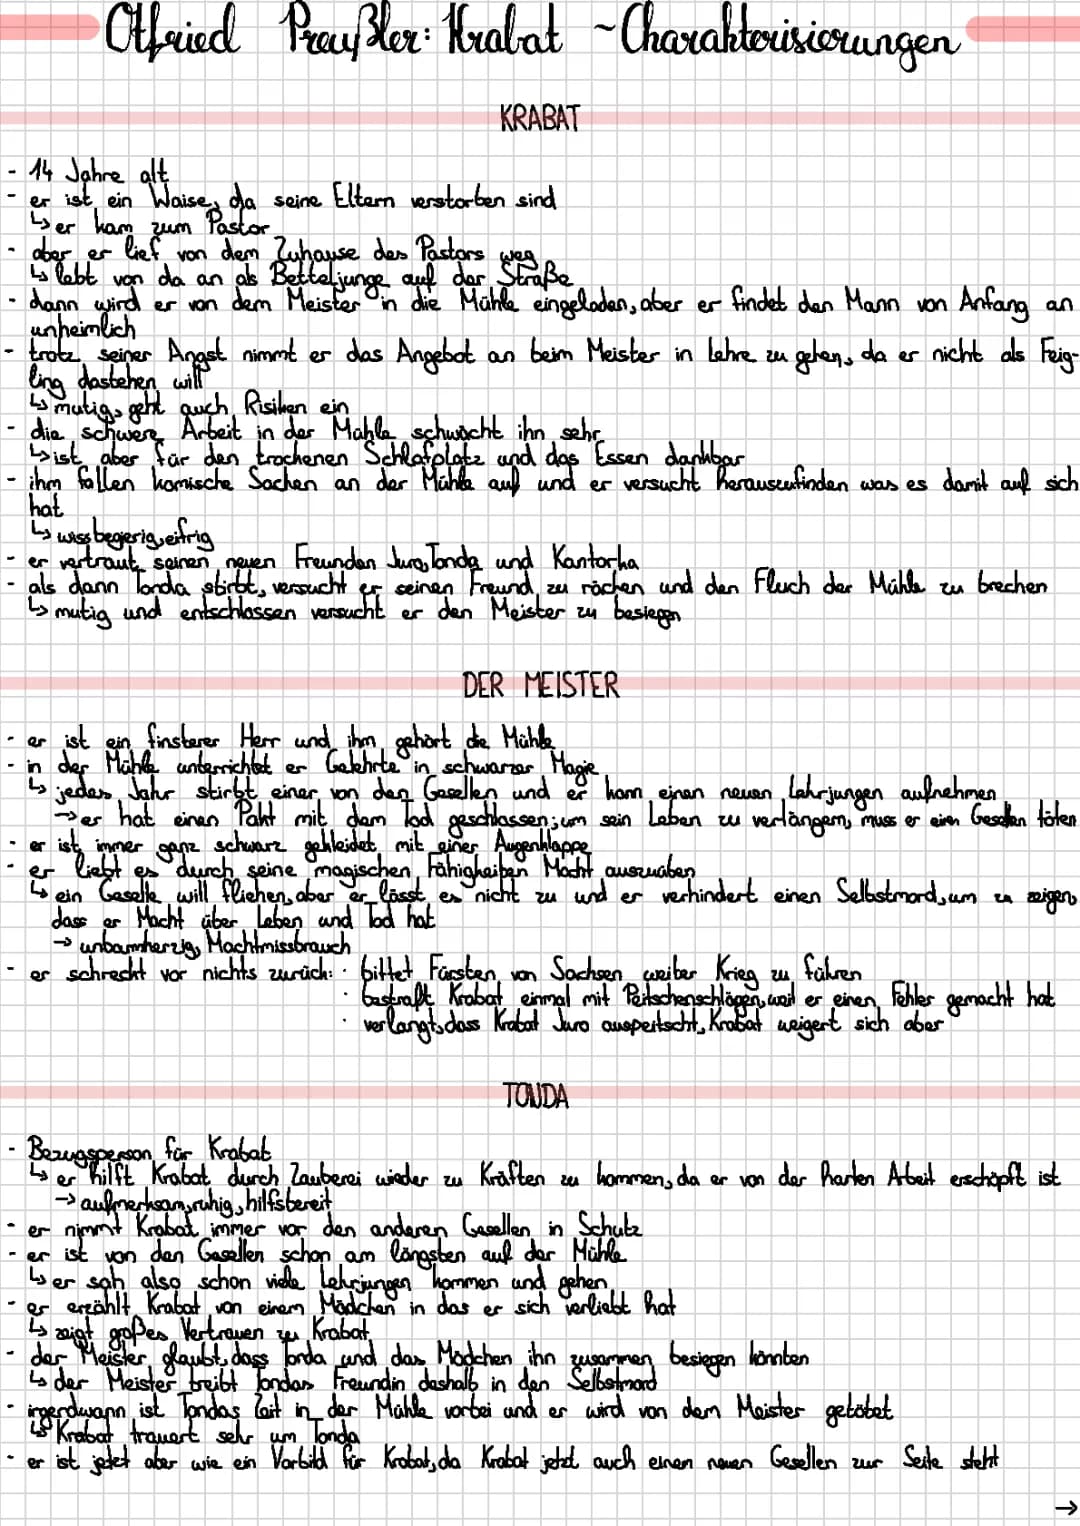 Otfried Preußler: Krabat ~ Charakterisierungen
KRABAT
- 14 Jahre alt
- er ist ein Waise, da seine Eltern verstorben sind
↳ er kam zum Pastor
- aber er lief von dem Zuhause des Pastors weg
↳ lebt von da an als Betteljunge auf der Straße
- dann wird er von dem Meister in die Mühle eingeladen, aber er findet den Mann von Anfang an
unheimlich
- trotz seiner Angst nimmt er das Angebot an beim Meister in Lehre zu gehen, da er nicht als Feig-
ling dastehen will
↳ mutig, geht auch Risiken ein
- die schwere Arbeit in der Mühle schwächt ihn sehr
↳ ist aber für den trockenen Schlafplatz und das Essen dankbar
- ihm fallen komische Sachen an der Mühle auf und er versucht herauszufinden was es damit auf sich
hat
↳ wissbegierig, eifrig
- er vertraut seinen neuen Freunden Juro, Tonda und Kantorka
- als dann Tonda stirbt, versucht er seinen Freund zu rächen und den Fluch der Mühle zu brechen
↳ mutig und entschlossen versucht er den Meister zu besiegen
DER MEISTER
- er ist ein finsterer Herr und ihm gehört die Mühle
- in der Mühle unterrichtet er Gelehrte in schwarzer Magie
↳ jedes Jahr stirbt einer von den Gesellen und er kann einen neuen Lehrjungen aufnehmen
→ er hat einen Pakt mit dem Tod geschlossen; um sein Leben zu verlängern, muss er einen Gesellen töten
- er ist immer ganz schwarz gekleidet mit einer Augenklappe
- er liebt es durch seine magischen Fähigkeiten Macht auszuüben
↳ ein Geselle will fliehen, aber er lässt es nicht zu und er verhindert einen Selbstmord, um zu zeigen,
dass er Macht über Leben und Tod hat
→ unbarmherzig, Machtmissbrauch
- er schreckt vor nichts zurück: · bittet Fürsten von Sachsen weiter Krieg zu führen
· bestraft Krabat einmal mit Peitschenschlägen, weil er einen Fehler gemacht hat
· verlangt, dass Krabat Juro auspeitscht, Krabat weigert sich aber
TONDA
- Bezugsperson für Krabat
↳ er hilft Krabat durch Zauberei wieder zu Kräften zu kommen, da er von der harten Arbeit erschöpft ist
→ aufmerksam, ruhig, hilfsbereit
- er nimmt Krabat immer vor den anderen Gesellen in Schutz
- er ist von den Gesellen schon am längsten auf der Mühle
↳ er sah also schon viele Lehrjungen kommen und gehen
- er erzählt Krabat von einem Mädchen in das er sich verliebt hat
↳ zeigt großes Vertrauen zu Krabat
- der Meister glaubt, dass Tonda und das Mädchen ihn zusammen besiegen könnten
↳ der Meister treibt Tondas Freundin deshalb in den Selbstmord
- irgendwann ist Tondas Zeit in der Mühle vorbei und er wird von dem Meister getötet
↳ Krabat trauert sehr um Tonda
- er ist jetzt aber wie ein Vorbild für Krabat, da Krabat jetzt auch einen neuen Gesellen zur Seite steht
→